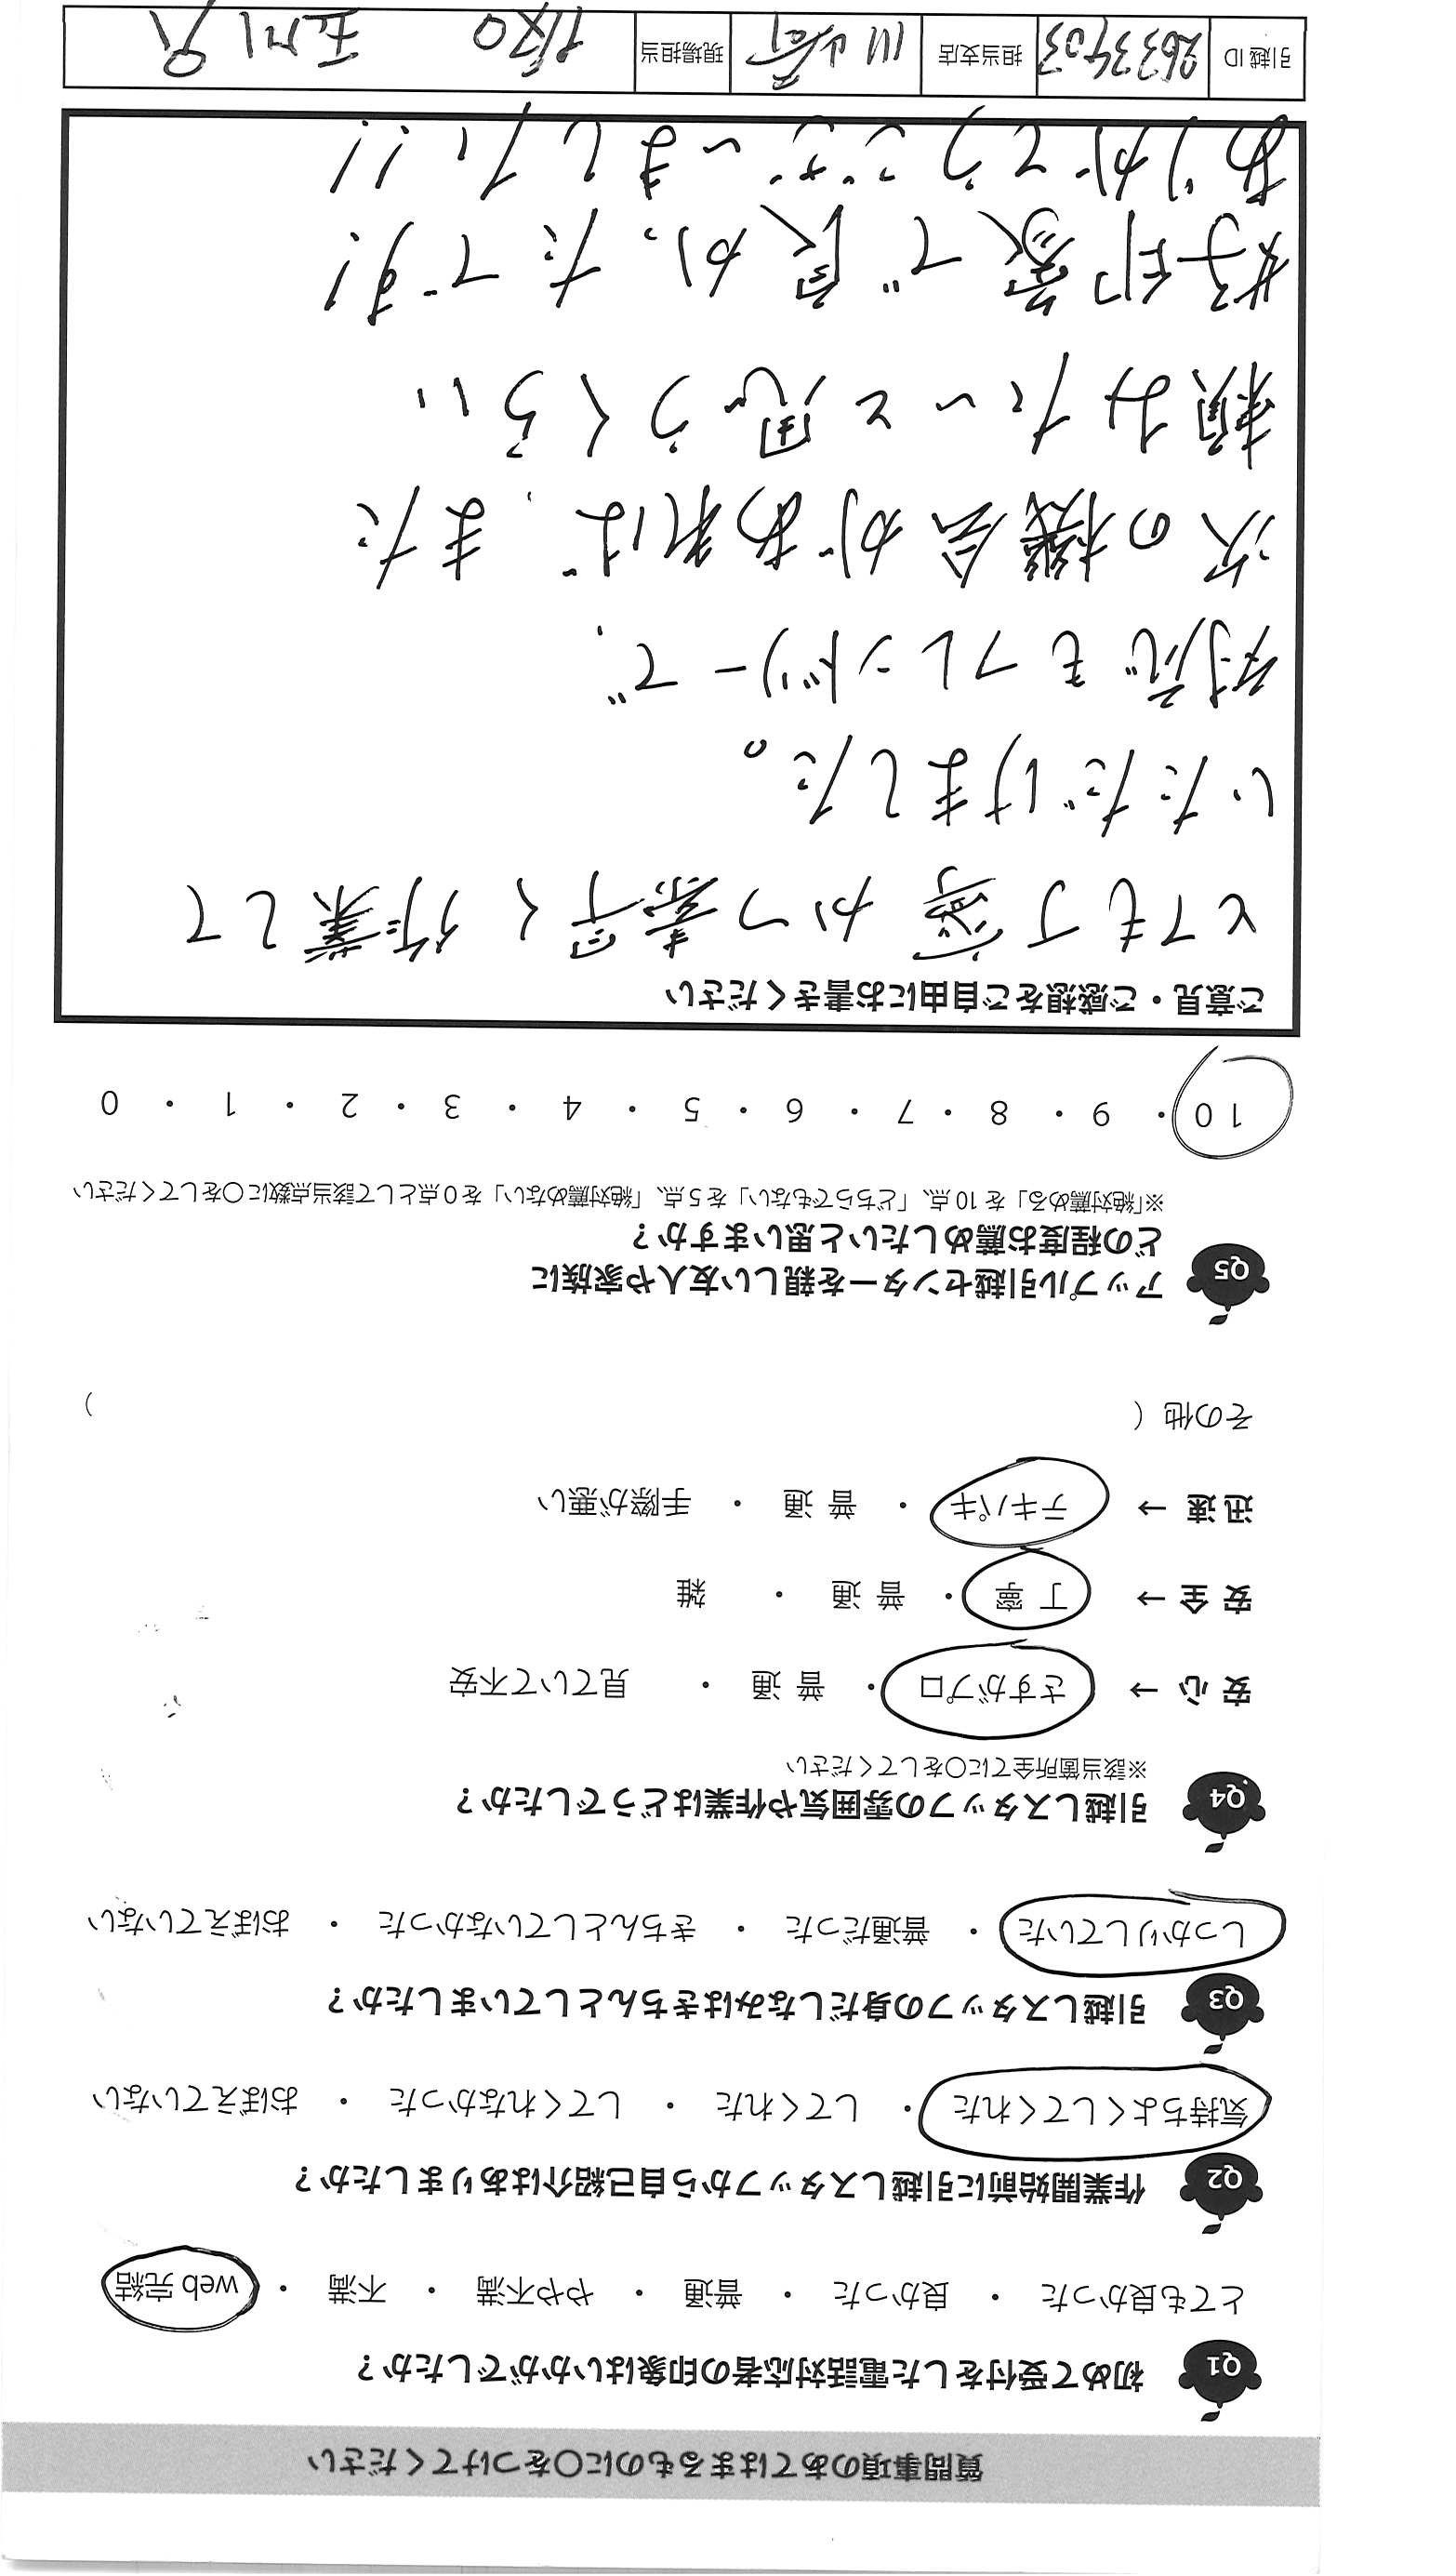 質問事項のあてはまるものに〇をつけてください
Q1 初めて受付をした電話対応者の印象はいかがでしたか？
とても良かった ・ 良かった ・ 普通 ・ やや不満 ・ 不満 ・ web 完結
Q2 作業開始前に引越しスタッフから自己紹介はありましたか？
気持ちよくしてくれた ・ してくれた ・ してくれなかった ・ おぼえていない
Q3 引越しスタッフの身だしなみはきちんとしていましたか？
しっかりしていた ・ 普通だった ・ きちんとしていなかった ・ おぼえていない
Q4 引越しスタッフの雰囲気や作業はどうでしたか？
※該当箇所全てに〇をしてください
安 心 → さすがプロ ・ 普 通 ・ 見ていて不安
安 全 → 丁 寧 ・ 普 通 ・ 雑
迅 速 → テキパキ ・ 普 通 ・ 手際が悪い
その他 ( )
Q5 アップル引越センターを親しい友人や家族に
どの程度お薦めしたいと思いますか？
※「絶対薦める」を 10 点、「どちらでもない」を 5 点、「絶対薦めない」を 0 点として該当点数に〇をしてください
10 ・ 9 ・ 8 ・ 7 ・ 6 ・ 5 ・ 4 ・ 3 ・ 2 ・ 1 ・ 0
ご意見・ご感想をご自由にお書きください
とても丁寧かつ素早く作業して
いただけました。
対応もフレンドリーで、
次の機会があれば、また
頼みたいと思うくらい
好印象で良かったです！
ありがとうございました！！
引越 ID 2633403 担当支店 川崎 現場担当